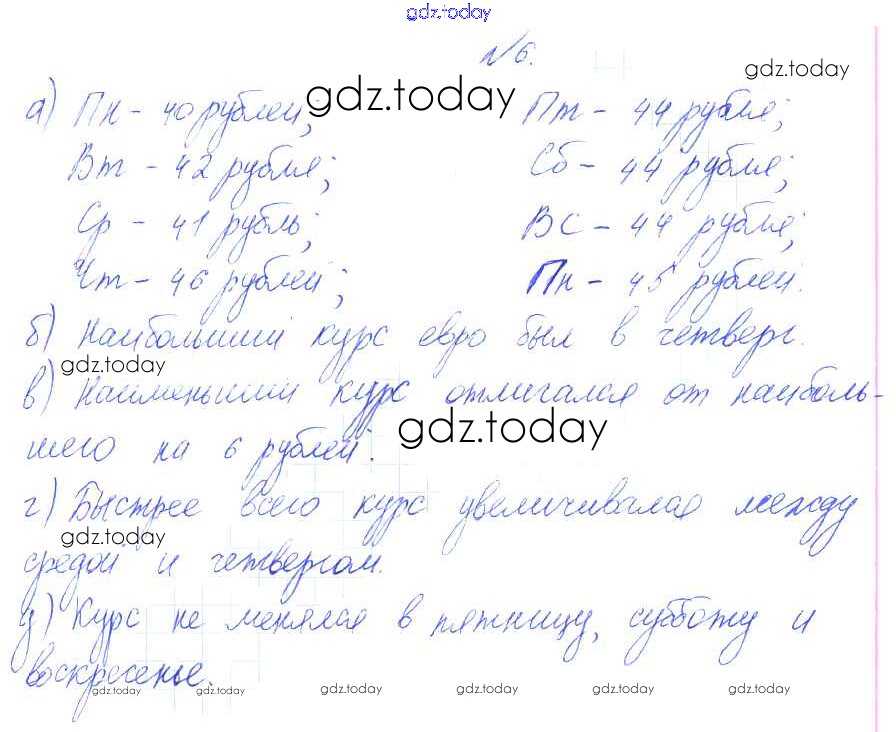 gdz.today
№6.
gdz.today
а) Пн - 40 рублей; gdz.today Пт - 44 рубля;
Вт - 42 рубля; Сб - 44 рубля;
Ср - 41 рубль; ВС - 44 рубля;
Чт - 46 рублей; Пн - 45 рублей.
б) Наибольший курс евро был в четверг.
gdz.today
в) Наименьший курс отличался от наиболь-
шего на 6 рублей. gdz.today
г) Быстрее всего курс увеличивался между
gdz.today
средой и четвергом.
д) Курс не менялся в пятницу, субботу и
воскресенье.
gdz.today gdz.today gdz.today gdz.today gdz.today gdz.today